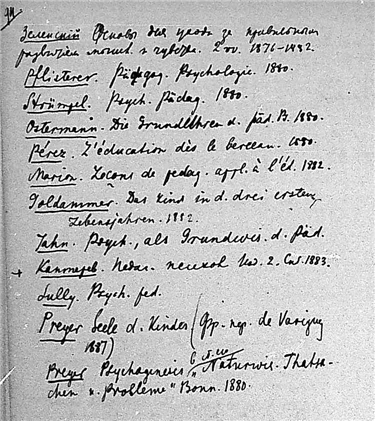 Зеленский Основы для ухода за правильным
развитием 2 1876-1892.
Pfisterer. Pädagog. Psychologie. 1880.
Strümpel. Psych. Pädag. 1880.
Ostermann. Die Grundlehren d. päd. 1880.
Pérez. L'éducation dès le berceau. 1880.
Marion. Leçons de pedag. appl. à l'éd. 1882.
Goldammer. Das Kind in d. drei ersten
Lebensjahren. 1882.
Jahn. Psych., als Grundwis. d. Päd.
+ Каптерев. Педаг. психол 2. Спб. 1883.
Sully. Psych.
Preyer Seele d. Kindes (фр. пер. de Varigny
1887)
Preyer Psychogenesis
"Naturwis. Thatsa-
chen u. Probleme" Bonn. 1880.